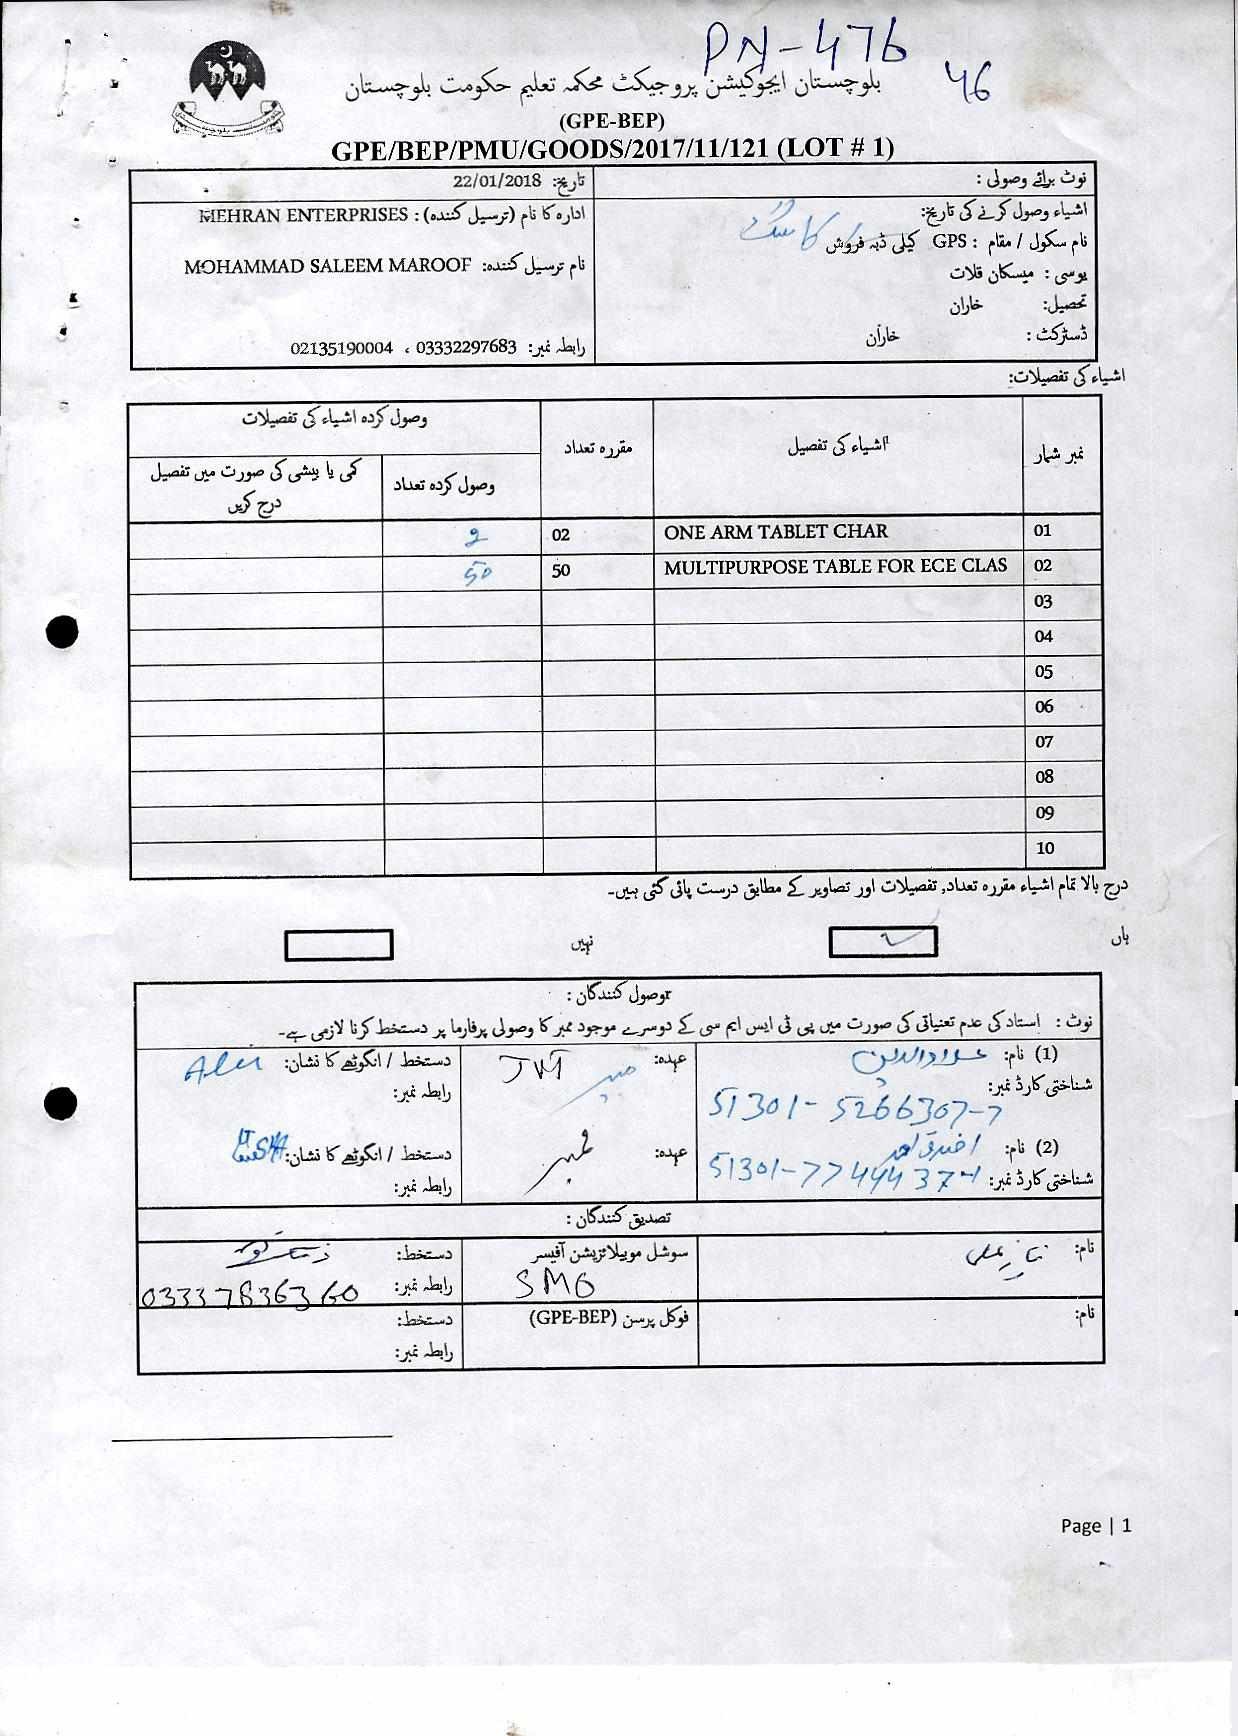 PN-476
46
بلوچستان ایجوکیشن پروجیکٹ محکمہ تعلیم حکومت بلوچستان
(GPE-BEP)
GPE/BEP/PMU/GOODS/2017/11/121 (LOT # 1)
نوٹ برائے وصولی :
اشیاء وصول کرنے کی تاریخ:
نام سکول / مقام : GPS کیلی ڈبہ فروش
یوسی : میسکان قلات
تحصیل: خاران
ڈسٹرکٹ : خاران
تاریخ: 22/01/2018
ادارہ کا نام (ترسیل کنندہ) : MEHRAN ENTERPRISES
نام ترسیل کنندہ: MOHAMMAD SALEEM MAROOF
رابطہ نمبر: 03332297683 ، 02135190004
اشیاء کی تفصیلات:
نمبر شمار اشیاء کی تفصیل مقررہ تعداد وصول کردہ اشیاء کی تفصیلات
وصول کردہ تعداد کمی یا بیشی کی صورت میں تفصیل درج کریں
01 ONE ARM TABLET CHAR 02 2
02 MULTIPURPOSE TABLE FOR ECE CLAS 50 50
03
04
05
06
07
08
09
10
درج بالا تمام اشیاء مقررہ تعداد, تفصیلات اور تصاویر کے مطابق درست پائی گئی ہیں۔
ہاں نہیں
وصول کنندگان :
نوٹ : استاد کی عدم تعیناتی کی صورت میں پی ٹی ایس ایم سی کے دوسرے موجود ممبر کا وصولی پرفارما پر دستخط کرنا لازمی ہے۔
(1) نام: عہدہ: JVT دستخط / انگوٹھے کا نشان:
شناختی کارڈ نمبر: 51301-5266307-7 رابطہ نمبر:
(2) نام: عہدہ: ممبر دستخط / انگوٹھے کا نشان:
شناختی کارڈ نمبر: رابطہ نمبر:
تصدیق کنندگان :
نام: سوشل موبیلائزیشن آفیسر دستخط:
SMO رابطہ نمبر: 03337836360
نام: فوکل پرسن (GPE-BEP) دستخط:
رابطہ نمبر:
Page | 1